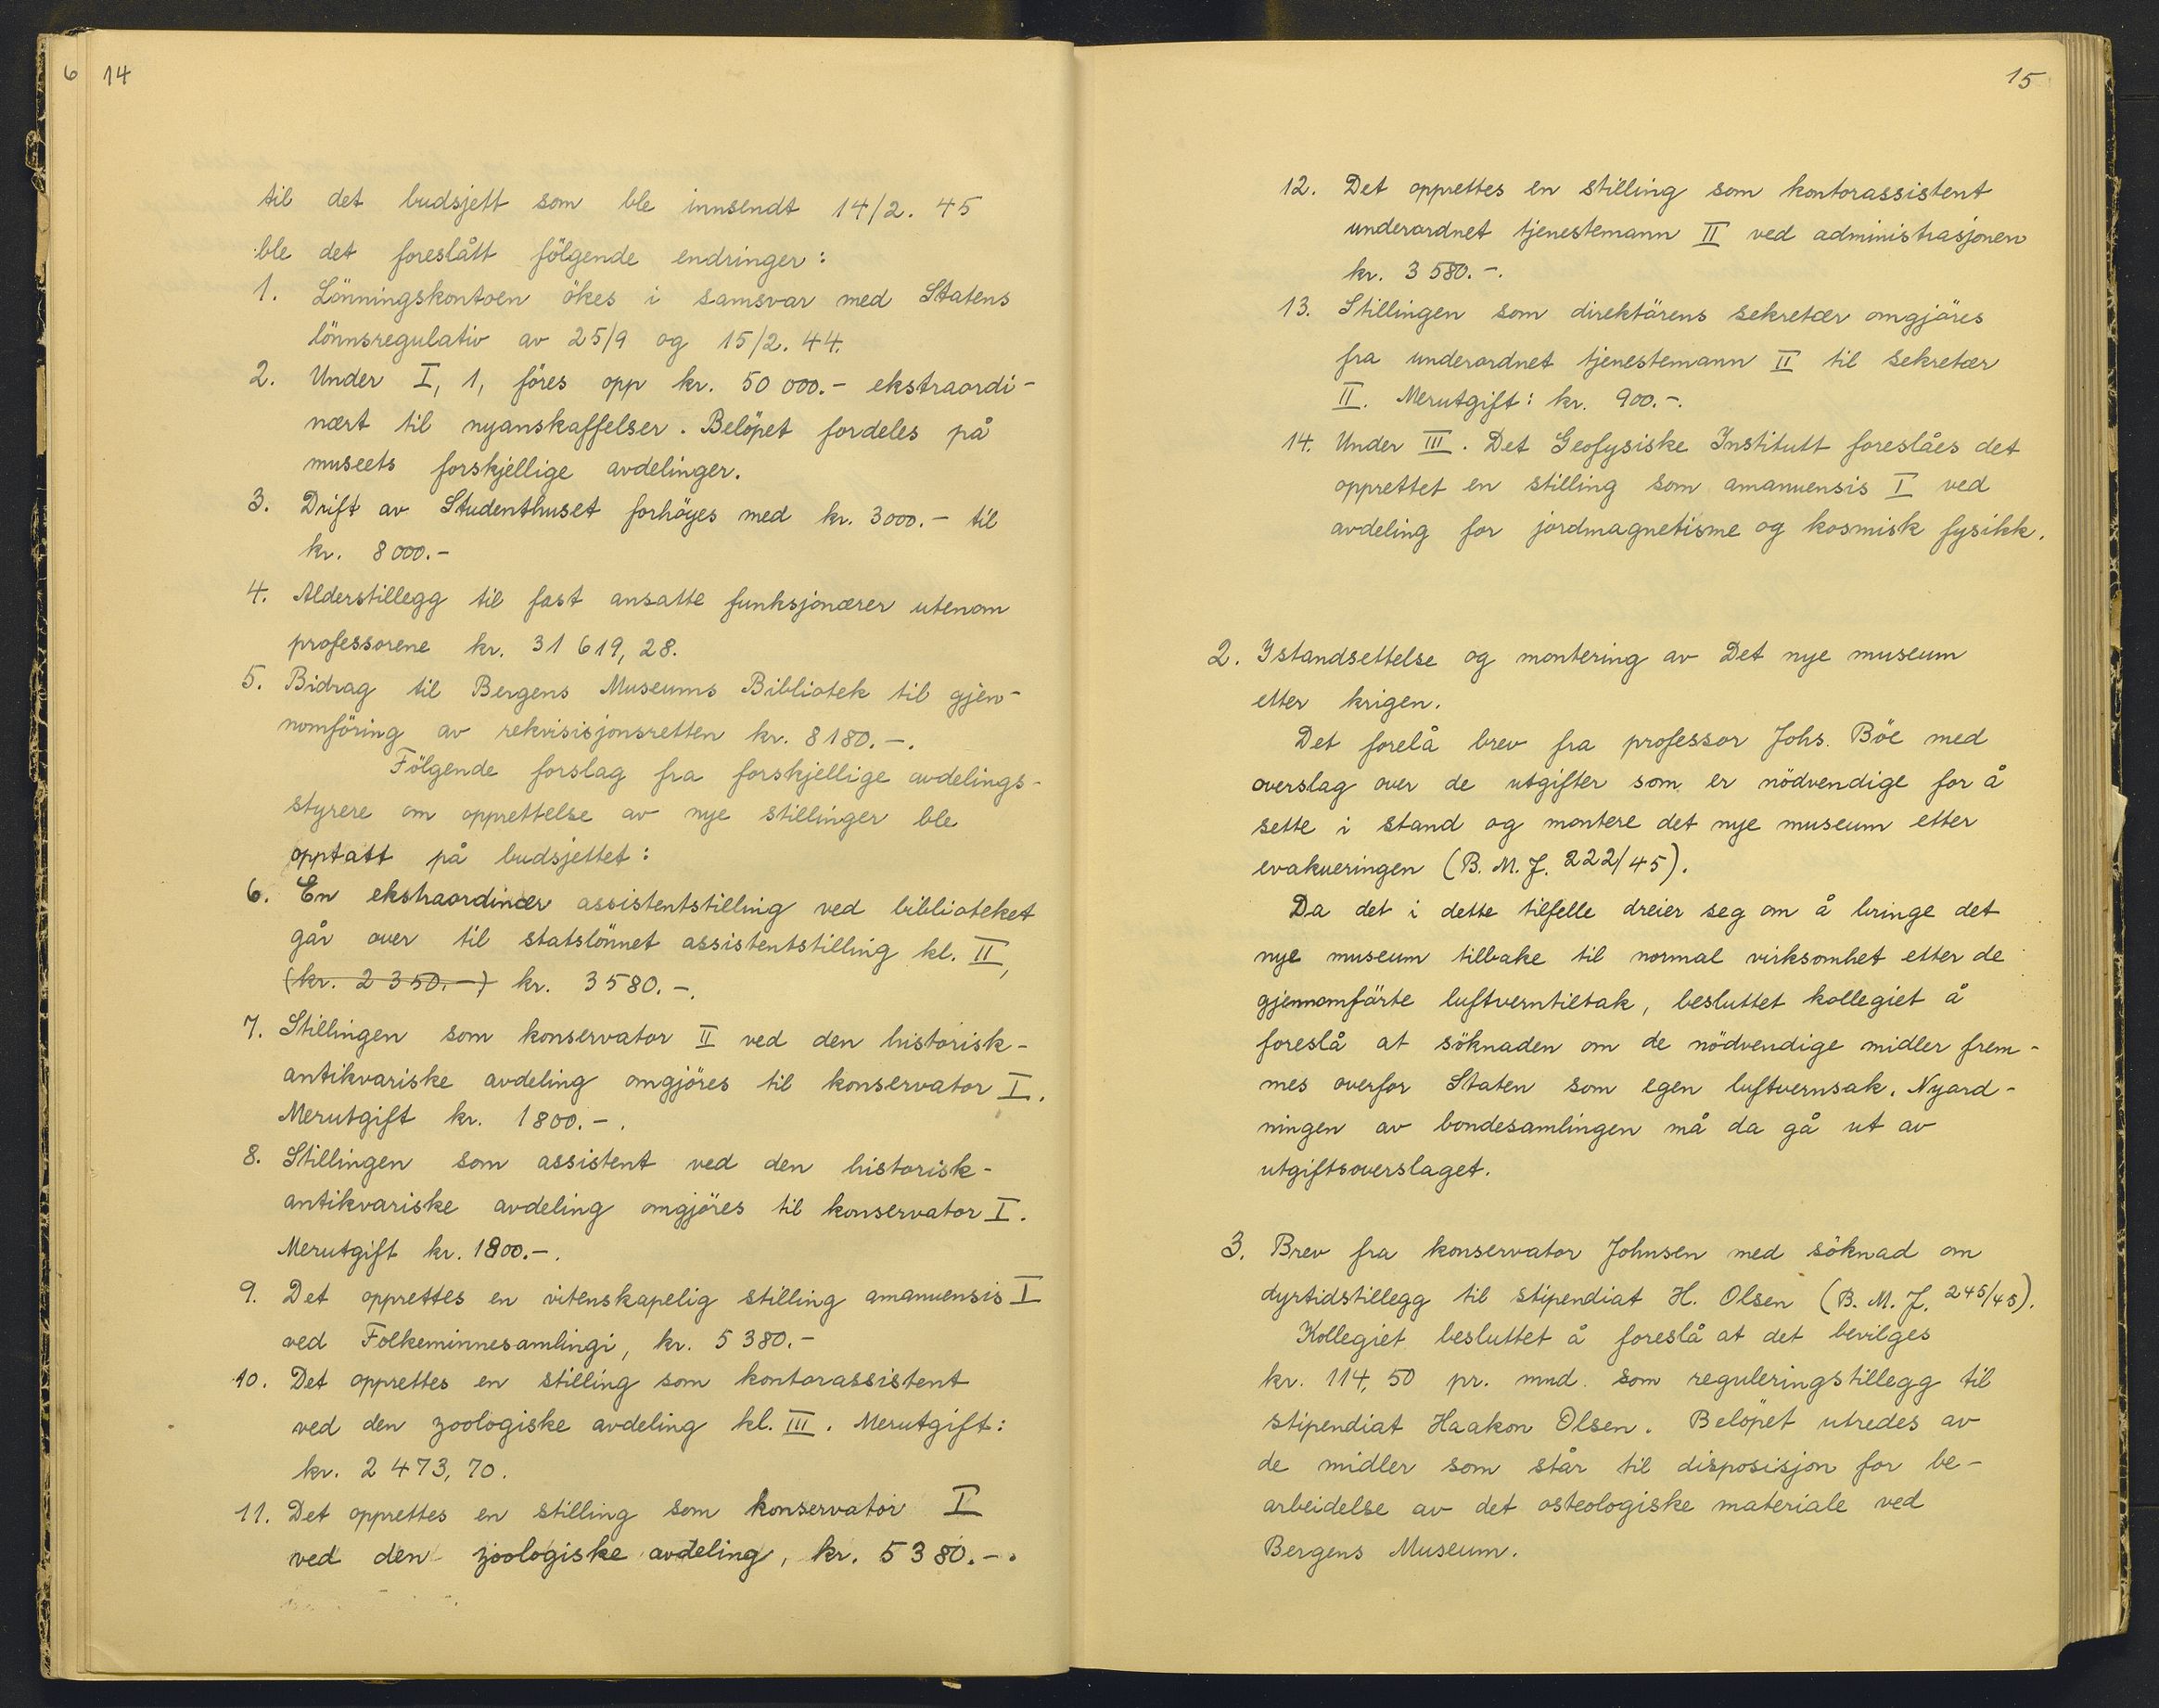 6 14
til det budsjett som ble innsendt 14/2. 45
ble det foreslått fölgende endringer:
1. Lönningskontoen ökes i samsvar med Statens
lönnsregulativ av 25/9 og 15/2. 44.
2. Under I, 1, föres opp kr. 50 000.- ekstraordi-
nært til nyanskaffelser. Belöpet fordeles på
museets forskjellige avdelinger.
3. Drift av Studenthuset forhöyes med kr. 3000.- til
kr. 8000.-
4. Alderstillegg til fast ansatte funksjonærer utenom
professorene kr. 31 619, 28.
5. Bidrag til Bergens Museums Bibliotek til gjen-
nomföring av rekvisisjonsretten kr. 8180.-.
Fölgende forslag fra forskjellige avdelings-
styrere om opprettelse av nye stillinger ble
opptatt på budsjettet:
6. En ekstraordinær assistentstilling ved biblioteket
går over til statslönnet assistentstilling kl. II,
(kr. 2350.-) kr. 3580.-.
7. Stillingen som konservator II ved den historisk-
antikvariske avdeling omgjöres til konservator I.
Merutgift kr. 1800.-.
8. Stillingen som assistent ved den historisk-
antikvariske avdeling omgjöres til konservator I.
Merutgift kr. 1800.-.
9. Det opprettes en vitenskapelig stilling amanuensis I
ved Folkeminnesamlingi, kr. 5380.-
10. Det opprettes en stilling som kontorassistent
ved den zoologiske avdeling kl. III. Merutgift:
kr. 2 473, 70.
11. Det opprettes en stilling som konservator I
ved den zoologiske avdeling, kr. 5380.-.
15
12. Det opprettes en stilling som kontorassistent
underordnet tjenestemann II ved administrasjonen
kr. 3580.-.
13. Stillingen som direktörens sekretær omgjöres
fra underordnet tjenestemann II til sekretær
II. Merutgift: kr. 900.-.
14. Under III. Det Geofysiske Institutt foreslåes det
opprettet en stilling som amanuensis I ved
avdeling for jordmagnetisme og kosmisk fysikk.
2. Istandsettelse og montering av Det nye museum
etter krigen.
Det forelå brev fra professor Johs. Böe med
overslag over de utgifter som er nödvendige for å
sette i stand og montere det nye museum etter
evakueringen (B. M. J. 222/45).
Da det i dette tilfelle dreier seg om å bringe det
nye museum tilbake til normal virksomhet etter de
gjennomförte luftverntiltak, besluttet kollegiet å
foreslå at söknaden om de nödvendige midler frem-
mes overfor Staten som egen luftvernsak. Nyord-
ningen av bondesamlingen må da gå ut av
utgiftsoverslaget.
3. Brev fra konservator Johnsen med söknad om
dyrtidstillegg til stipendiat H. Olsen (B. M. J. 245/45).
Kollegiet besluttet å foreslå at det bevilges
kr. 114, 50 pr. mnd. som reguleringstillegg til
stipendiat Haakon Olsen. Belöpet utredes av
de midler som står til disposisjon for be-
arbeidelse av det osteologiske materiale ved
Bergens Museum.